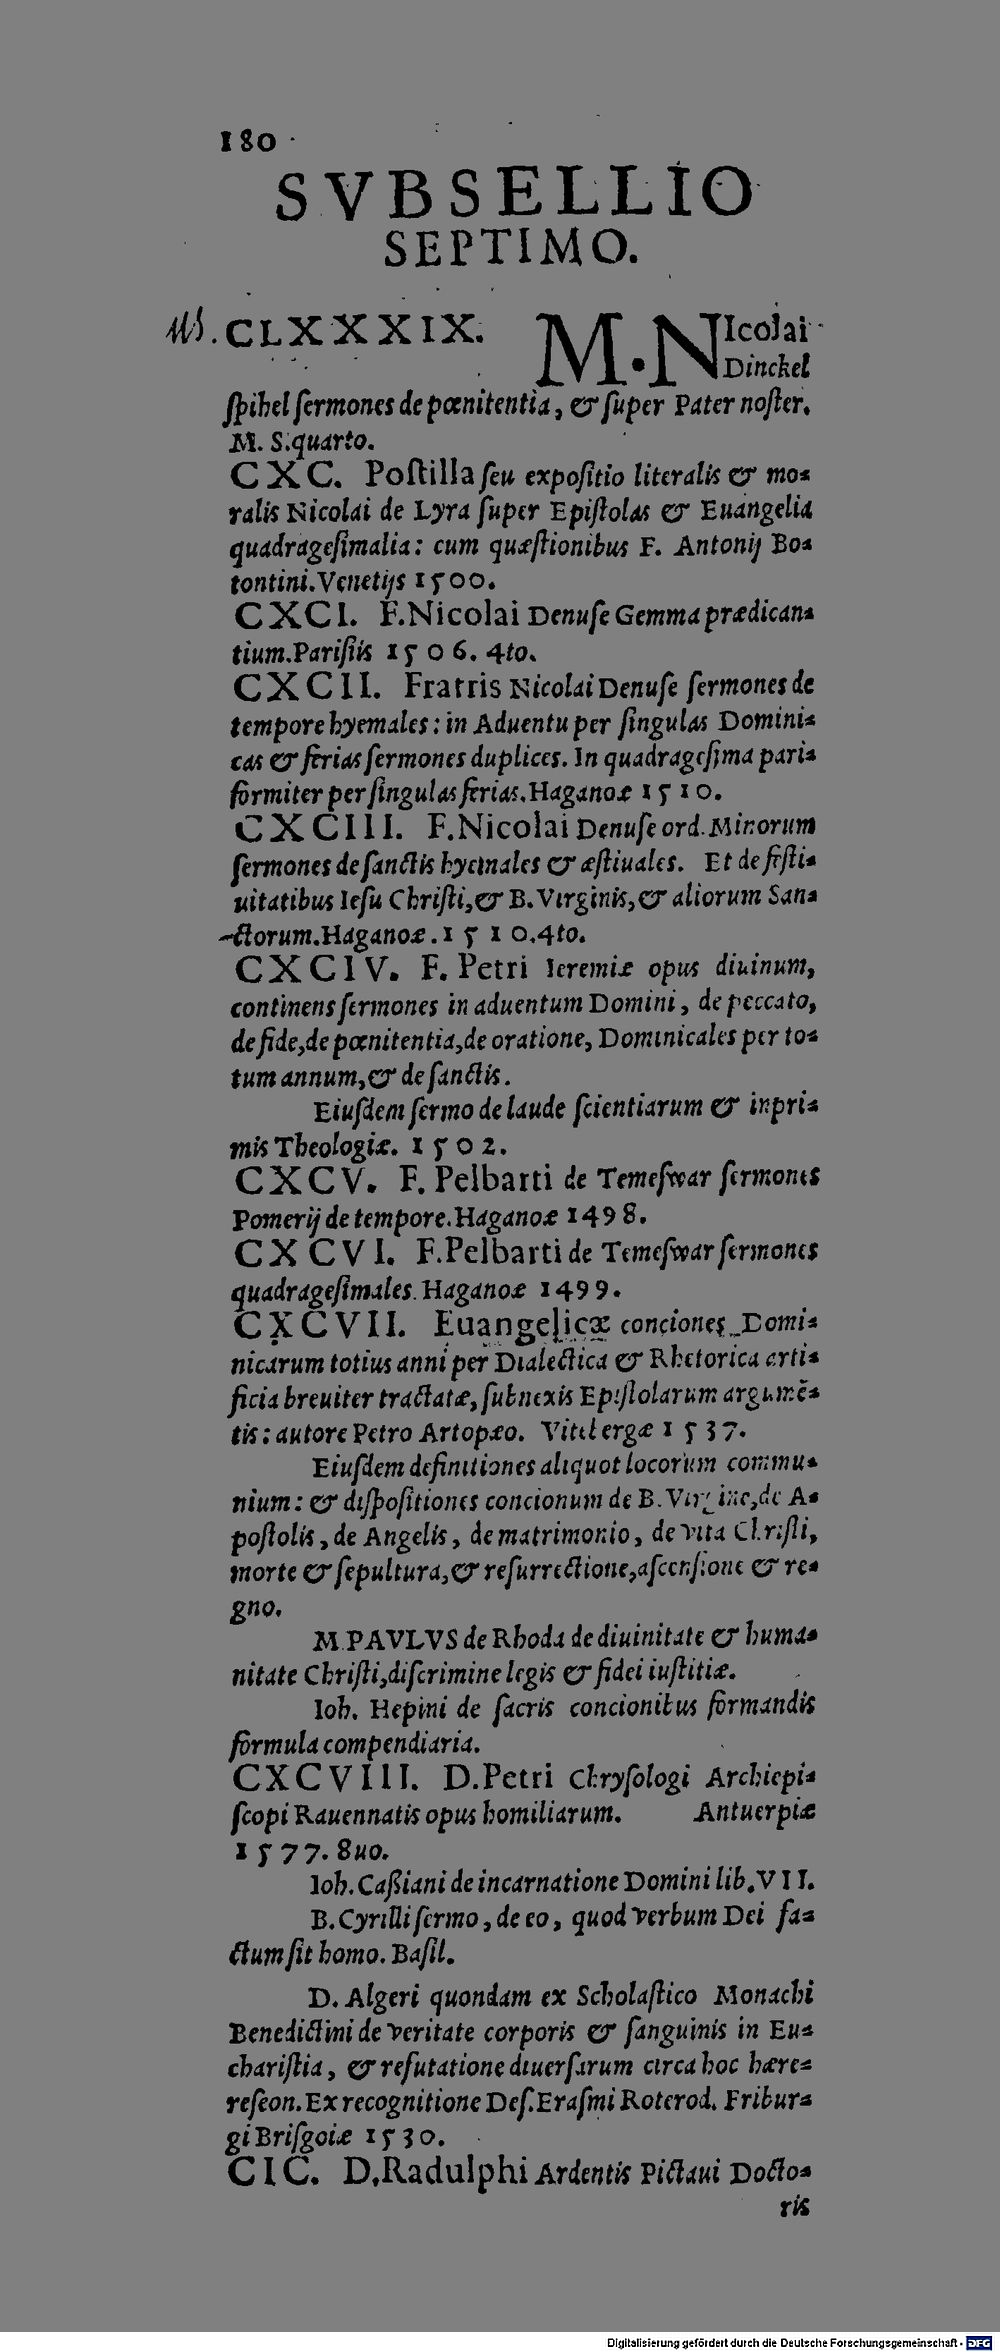 180
SVBSELLIO
SEPTIMO.
Ms. CLXXXIX. M. NIcolai
Dinckel
ſpihel ſermones de pœnitentia, & ſuper Pater noſter.
M. S. quarto.
CXC. Poſtilla ſeu expoſitio literalis & mo-
ralis Nicolai de Lyra ſuper Epiſtolas & Euangelia
quadrageſimalia: cum quæſtionibus F. Antonij Bo-
tontini. Venetijs 1500.
CXCI. F. Nicolai Denuſe Gemma prædican-
tium. Pariſiis 1506. 4to.
CXCII. Fratris Nicolai Denuſe ſermones de
tempore hyemales: in Aduentu per ſingulas Domini-
cas & ferias ſermones duplices. In quadrageſima pari-
formiter per ſingulas ferias. Haganoæ 1510.
CXCIII. F. Nicolai Denuſe ord. Minorum
ſermones de ſanctis hyemales & æſtiuales. Et de feſti-
uitatibus Ieſu Chriſti, & B. Virginis, & aliorum San-
ctorum. Haganoæ. 1510. 4to.
CXCIV. F. Petri Ieremiæ opus diuinum,
continens ſermones in aduentum Domini, de peccato,
de fide, de pœnitentia, de oratione, Dominicales per to-
tum annum, & de ſanctis.
Eiuſdem ſermo de laude ſcientiarum & inpri-
mis Theologiæ. 1502.
CXCV. F. Pelbarti de Temeſwar ſermones
Pomerij de tempore. Haganoæ 1498.
CXCVI. F. Pelbarti de Temeſwar ſermones
quadrageſimales. Haganoæ 1499.
CXCVII. Euangelicæ conciones Domi-
nicarum totius anni per Dialectica & Rhetorica arti-
ficia breuiter tractatæ, ſubnexis Epiſtolarum argumē-
tis: autore Petro Artopæo. Vitebergæ 1537.
Eiuſdem definitiones aliquot locorum commu-
nium: & diſpoſitiones concionum de B. Virgine, de A-
poſtolis, de Angelis, de matrimonio, de vita Chriſti,
morte & ſepultura, & reſurrectione, aſcenſione & re-
gno.
M. PAVLVS de Rhoda de diuinitate & huma-
nitate Chriſti, diſcrimine legis & fidei iuſtitiæ.
Ioh. Hepini de ſacris concionibus formandis
formula compendiaria.
CXCVIII. D. Petri Chryſologi Archiepi-
ſcopi Rauennatis opus homiliarum. Antuerpiæ
1577. 8uo.
Ioh. Caßiani de incarnatione Domini lib. VII.
B. Cyrilli ſermo, de eo, quod verbum Dei fa-
ctum ſit homo. Baſil.
D. Algeri quondam ex Scholaſtico Monachi
Benedictini de veritate corporis & ſanguinis in Eu-
chariſtia, & refutatione diuerſarum circa hoc hære-
reſeon. Ex recognitione Deſ. Eraſmi Roterod. Fribur-
gi Briſgoiæ 1530.
CIC. D. Radulphi Ardentis Pictaui Docto-
ris
Digitalisierung gefördert durch die Deutsche Forschungsgemeinschaft - DFG